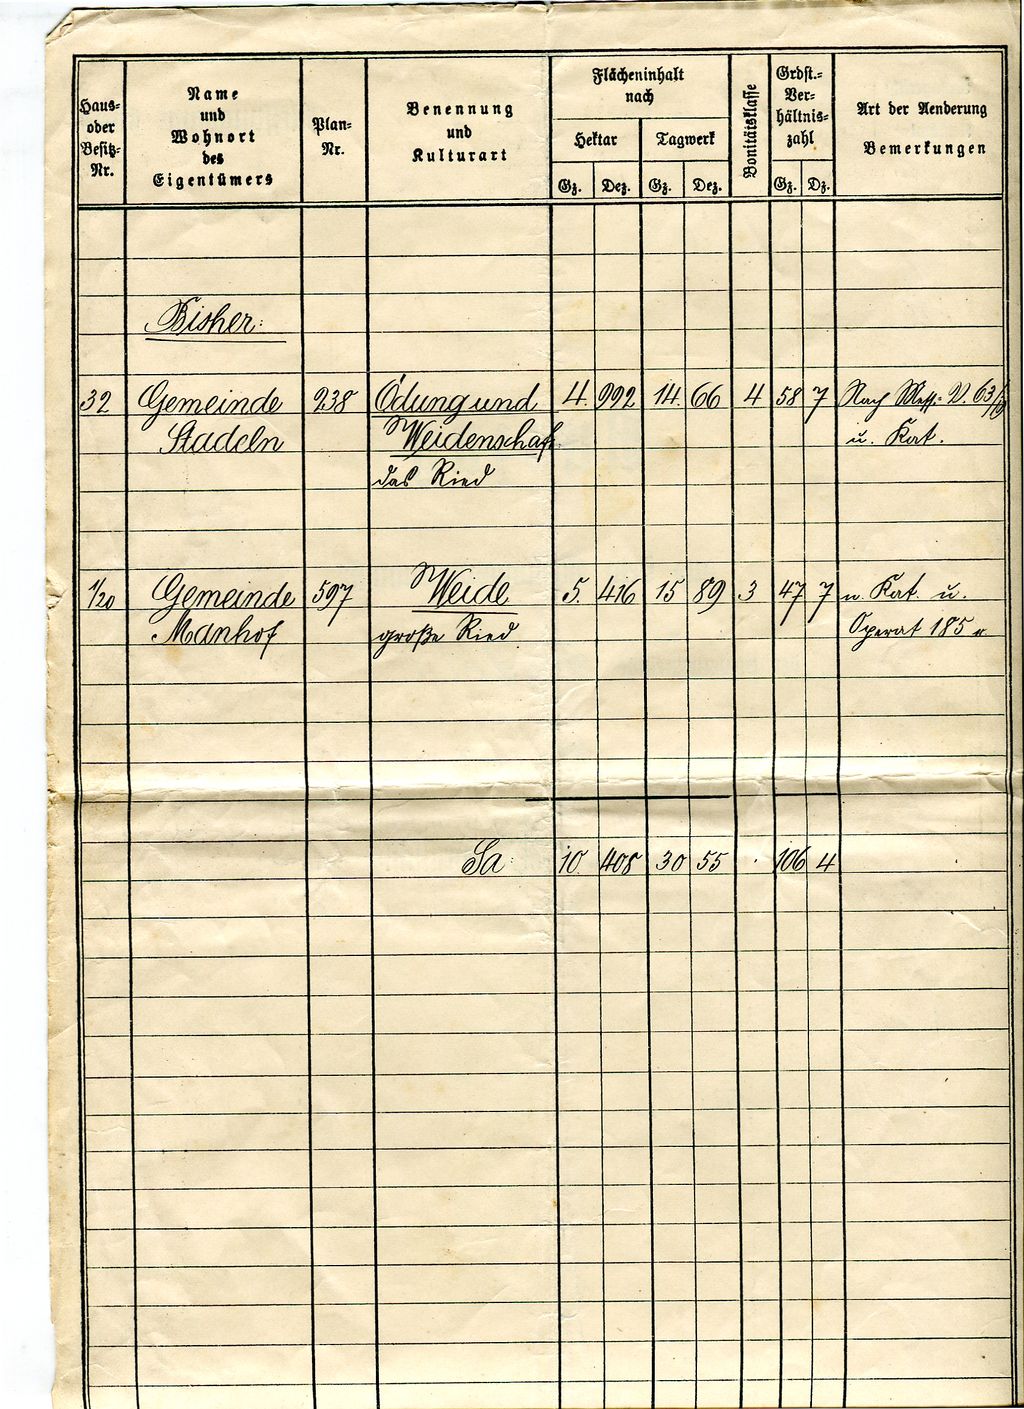 Haus- oder Besitz-Nr.
Name
und
Wohnort
des
Eigentümers
Plan-
Nr.
Benennung
und
Kulturart
Flächeninhalt
nach
Hektar Tagwerk
Gz. Dez. Gz. Dez.
Bonitätsklasse
Grdst.-
Ver-
hältnis-
zahl
Gz. Dz.
Art der Aenderung
Bemerkungen
Bisher:
32 Gemeinde 238 Ödung und 4. 992 14. 66 4 58 7 Nach Mess- V. 63/
Stadeln Weidenschaft u. Kat.
das Ried
1/20 Gemeinde 597 Weide 5. 416 15 89 3 47 7 n. Kat. u.
Manhof große Ried Operat 185
Sa: 10. 408 30 55 . 106 4